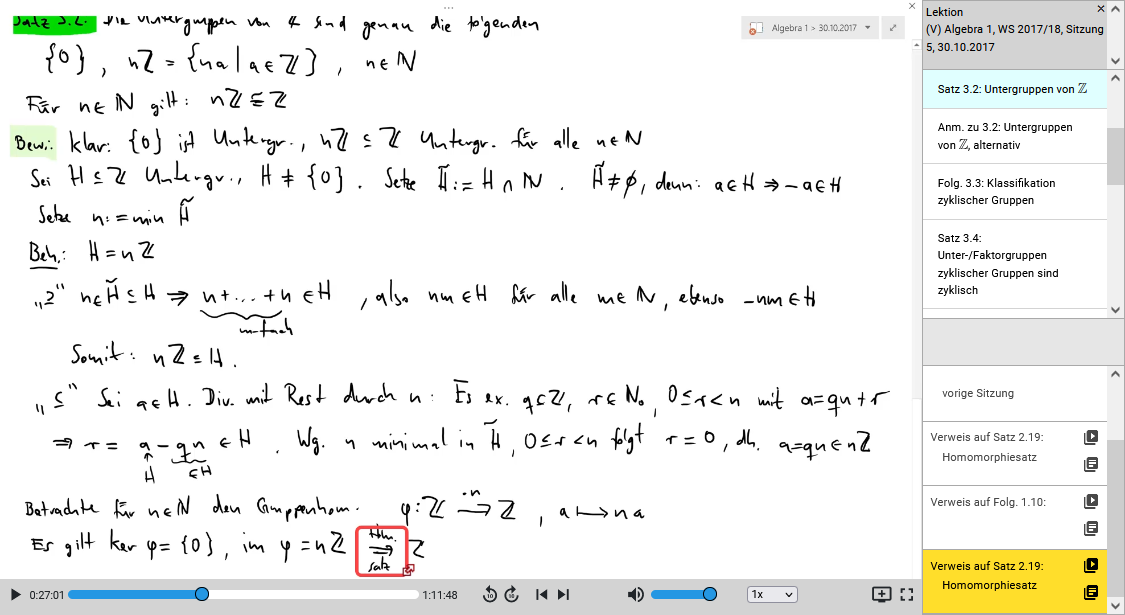 Satz 3.2. Die Untergruppen von ℤ sind genau die folgenden
{0} , nℤ = {na | a ∈ ℤ} , n ∈ ℕ
Für n ∈ ℕ gilt: nℤ ≅ ℤ
Bew.: klar: {0} ist Untergr., nℤ ⊆ ℤ Untergr. für alle n ∈ ℕ
Sei H ⊆ ℤ Untergr., H ≠ {0}. Setze H̃ := H ∩ ℕ. H̃ ≠ ∅, denn: a ∈ H ⇒ -a ∈ H
Setze n := min H̃
Beh.: H = nℤ
„⊇“ n ∈ H̃ ⊆ H ⇒ n+...+n ∈ H , also nm ∈ H für alle m ∈ ℕ, ebenso -nm ∈ H
m-fach
Somit: nℤ ⊆ H.
„⊆“ Sei a ∈ H. Div. mit Rest durch n: Es ex. q ∈ ℤ, r ∈ ℕ₀, 0 ≤ r < n mit a = qn + r
⇒ r = a - qn ∈ H . Wg. n minimal in H̃, 0 ≤ r < n folgt r = 0, dh. a = qn ∈ nℤ
H ∈ H
Betrachte für n ∈ ℕ den Gruppenhom. φ: ℤ →(·n) ℤ , a ↦ na
Es gilt ker φ = {0}, im φ = nℤ ⇒ ℤ
Hom. satz
Algebra 1 > 30.10.2017
0:27:01
1:11:48
10
10
1x
Lektion
(V) Algebra 1, WS 2017/18, Sitzung
5, 30.10.2017
Satz 3.2: Untergruppen von ℤ
Anm. zu 3.2: Untergruppen
von ℤ, alternativ
Folg. 3.3: Klassifikation
zyklischer Gruppen
Satz 3.4:
Unter-/Faktorgruppen
zyklischer Gruppen sind
zyklisch
vorige Sitzung
Verweis auf Satz 2.19:
Homomorphiesatz
Verweis auf Folg. 1.10:
Verweis auf Satz 2.19:
Homomorphiesatz